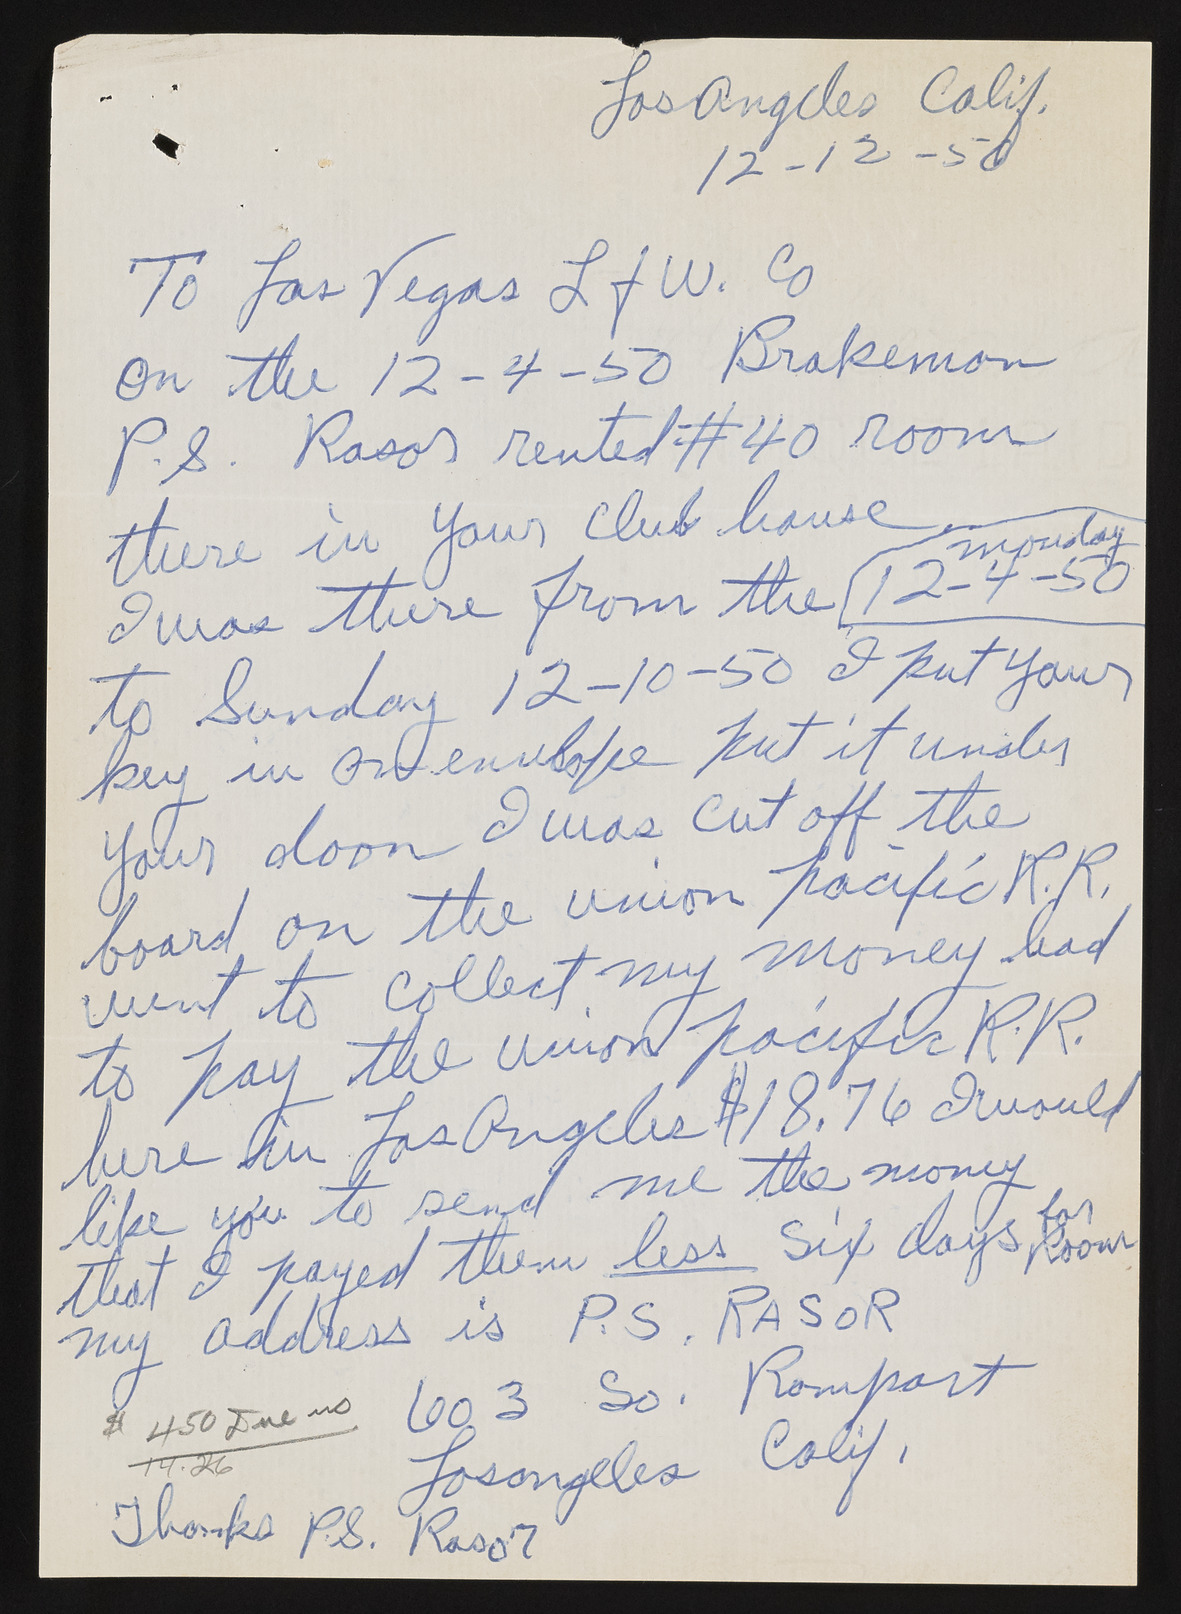 Los Angeles Calif.
12-12-50
To Las Vegas L & W. Co
on the 12-4-50 Brakeman
P.S. Rasor rented #40 room
there in your club house
monday
I was there from the 12-4-50
to Sunday 12-10-50 I put your
key in an envelope put it under
your door I was cut off the
board on the union pacific R.R.
went to collect my money had
to pay the union pacific R.R.
here in Los Angeles $18.76 I would
like you to send me the money
that I payed them less six days for Room
my address is P.S. RASOR
603 So. Rampart
$ 450 Due us
14.26
Losangeles Calif.
Thanks P.S. Rasor